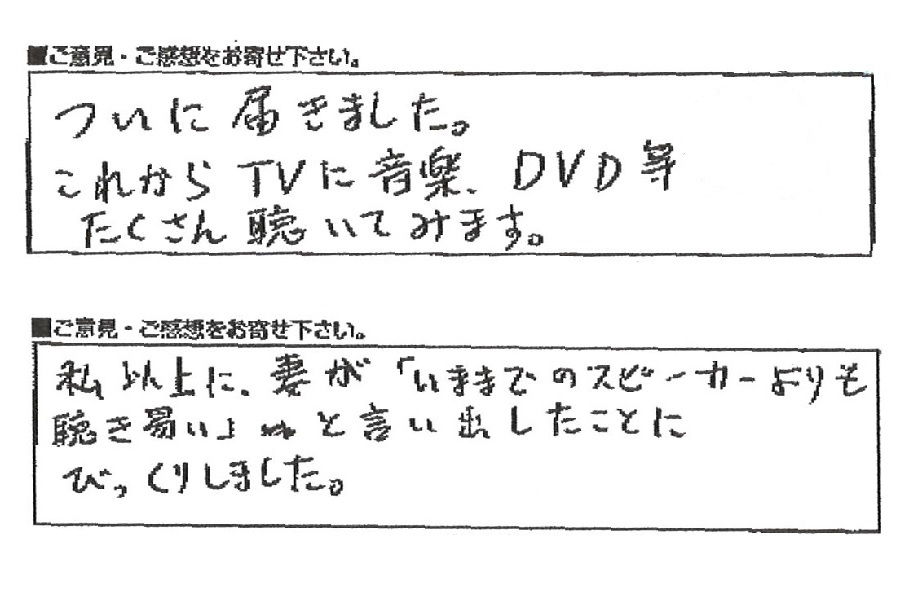 ■ご意見・ご感想をお寄せ下さい。
ついに届きました。
これから TVに音楽、DVD等
たくさん聴いてみます。
■ご意見・ご感想をお寄せ下さい。
私以上に、妻が「いままでのスピーカーよりも
聴き易い」と言い出したことに
びっくりしました。